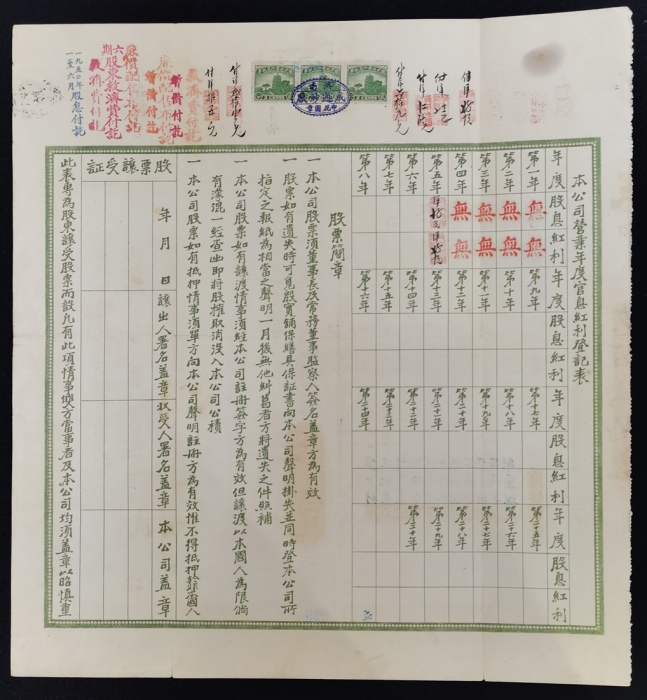 本公司營業年度官息紅利登記表
年度 股息 紅利 年度 股息 紅利 年度 股息 紅利 年度 股息 紅利
第一年 無 無 第九年 第十七年 第二十五年
第二年 無 無 第十年 第十八年 第二十六年
第三年 無 無 第十一年 第十九年 第二十七年
第四年 無 無 第十二年 第二十年 第二十八年
第五年 第十三年 第二十一年 第二十九年
第六年 第十四年 第二十二年 第三十年
第七年 第十五年 第二十三年
第八年 第十六年 第二十四年
股票簡章
一 本公司股票須董事長及常務董事監察人簽名蓋章方為有效
一 股票如有遺失時可覓殷實鋪保繕具保証書向本公司聲明掛失並同時登本公司所
指定之報紙為相當之聲明一月後無他糾葛者方將遺失之件照補
一 本公司股票如有讓渡情事須經本公司註冊簽字方為有效但讓渡以本國人為限倘
有濛混一經查出即將股權取消沒入本公司公積
一 本公司股票如有抵押情事須單方向本公司聲明註冊方為有效惟不得抵押於非國人
股票讓受証
年 月 日 讓出人署名蓋章 收受人署名蓋章 本公司蓋章
此表專為股東讓受股票而設凡有此項情事雙方當事者及本公司均須蓋章以昭慎重
救濟費付訖
新價付訖
廉價配售布付訖
六期
股東救濟費付訖
一九五〇年股息付訖
一至六月